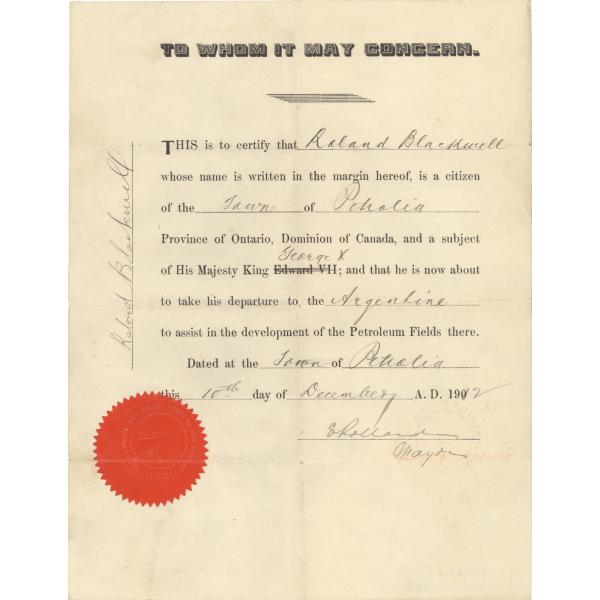 TO WHOM IT MAY CONCERN.
THIS is to certify that Roland Blackwell
whose name is written in the margin hereof, is a citizen
of the Town of Petrolia
Province of Ontario, Dominion of Canada, and a subject
George V
of His Majesty King Edward VII; and that he is now about
to take his departure to the Argentine
to assist in the development of the Petroleum Fields there.
Dated at the Town of Petrolia
this 10th day of December A. D. 1912
Mayor
Roland Blackwell